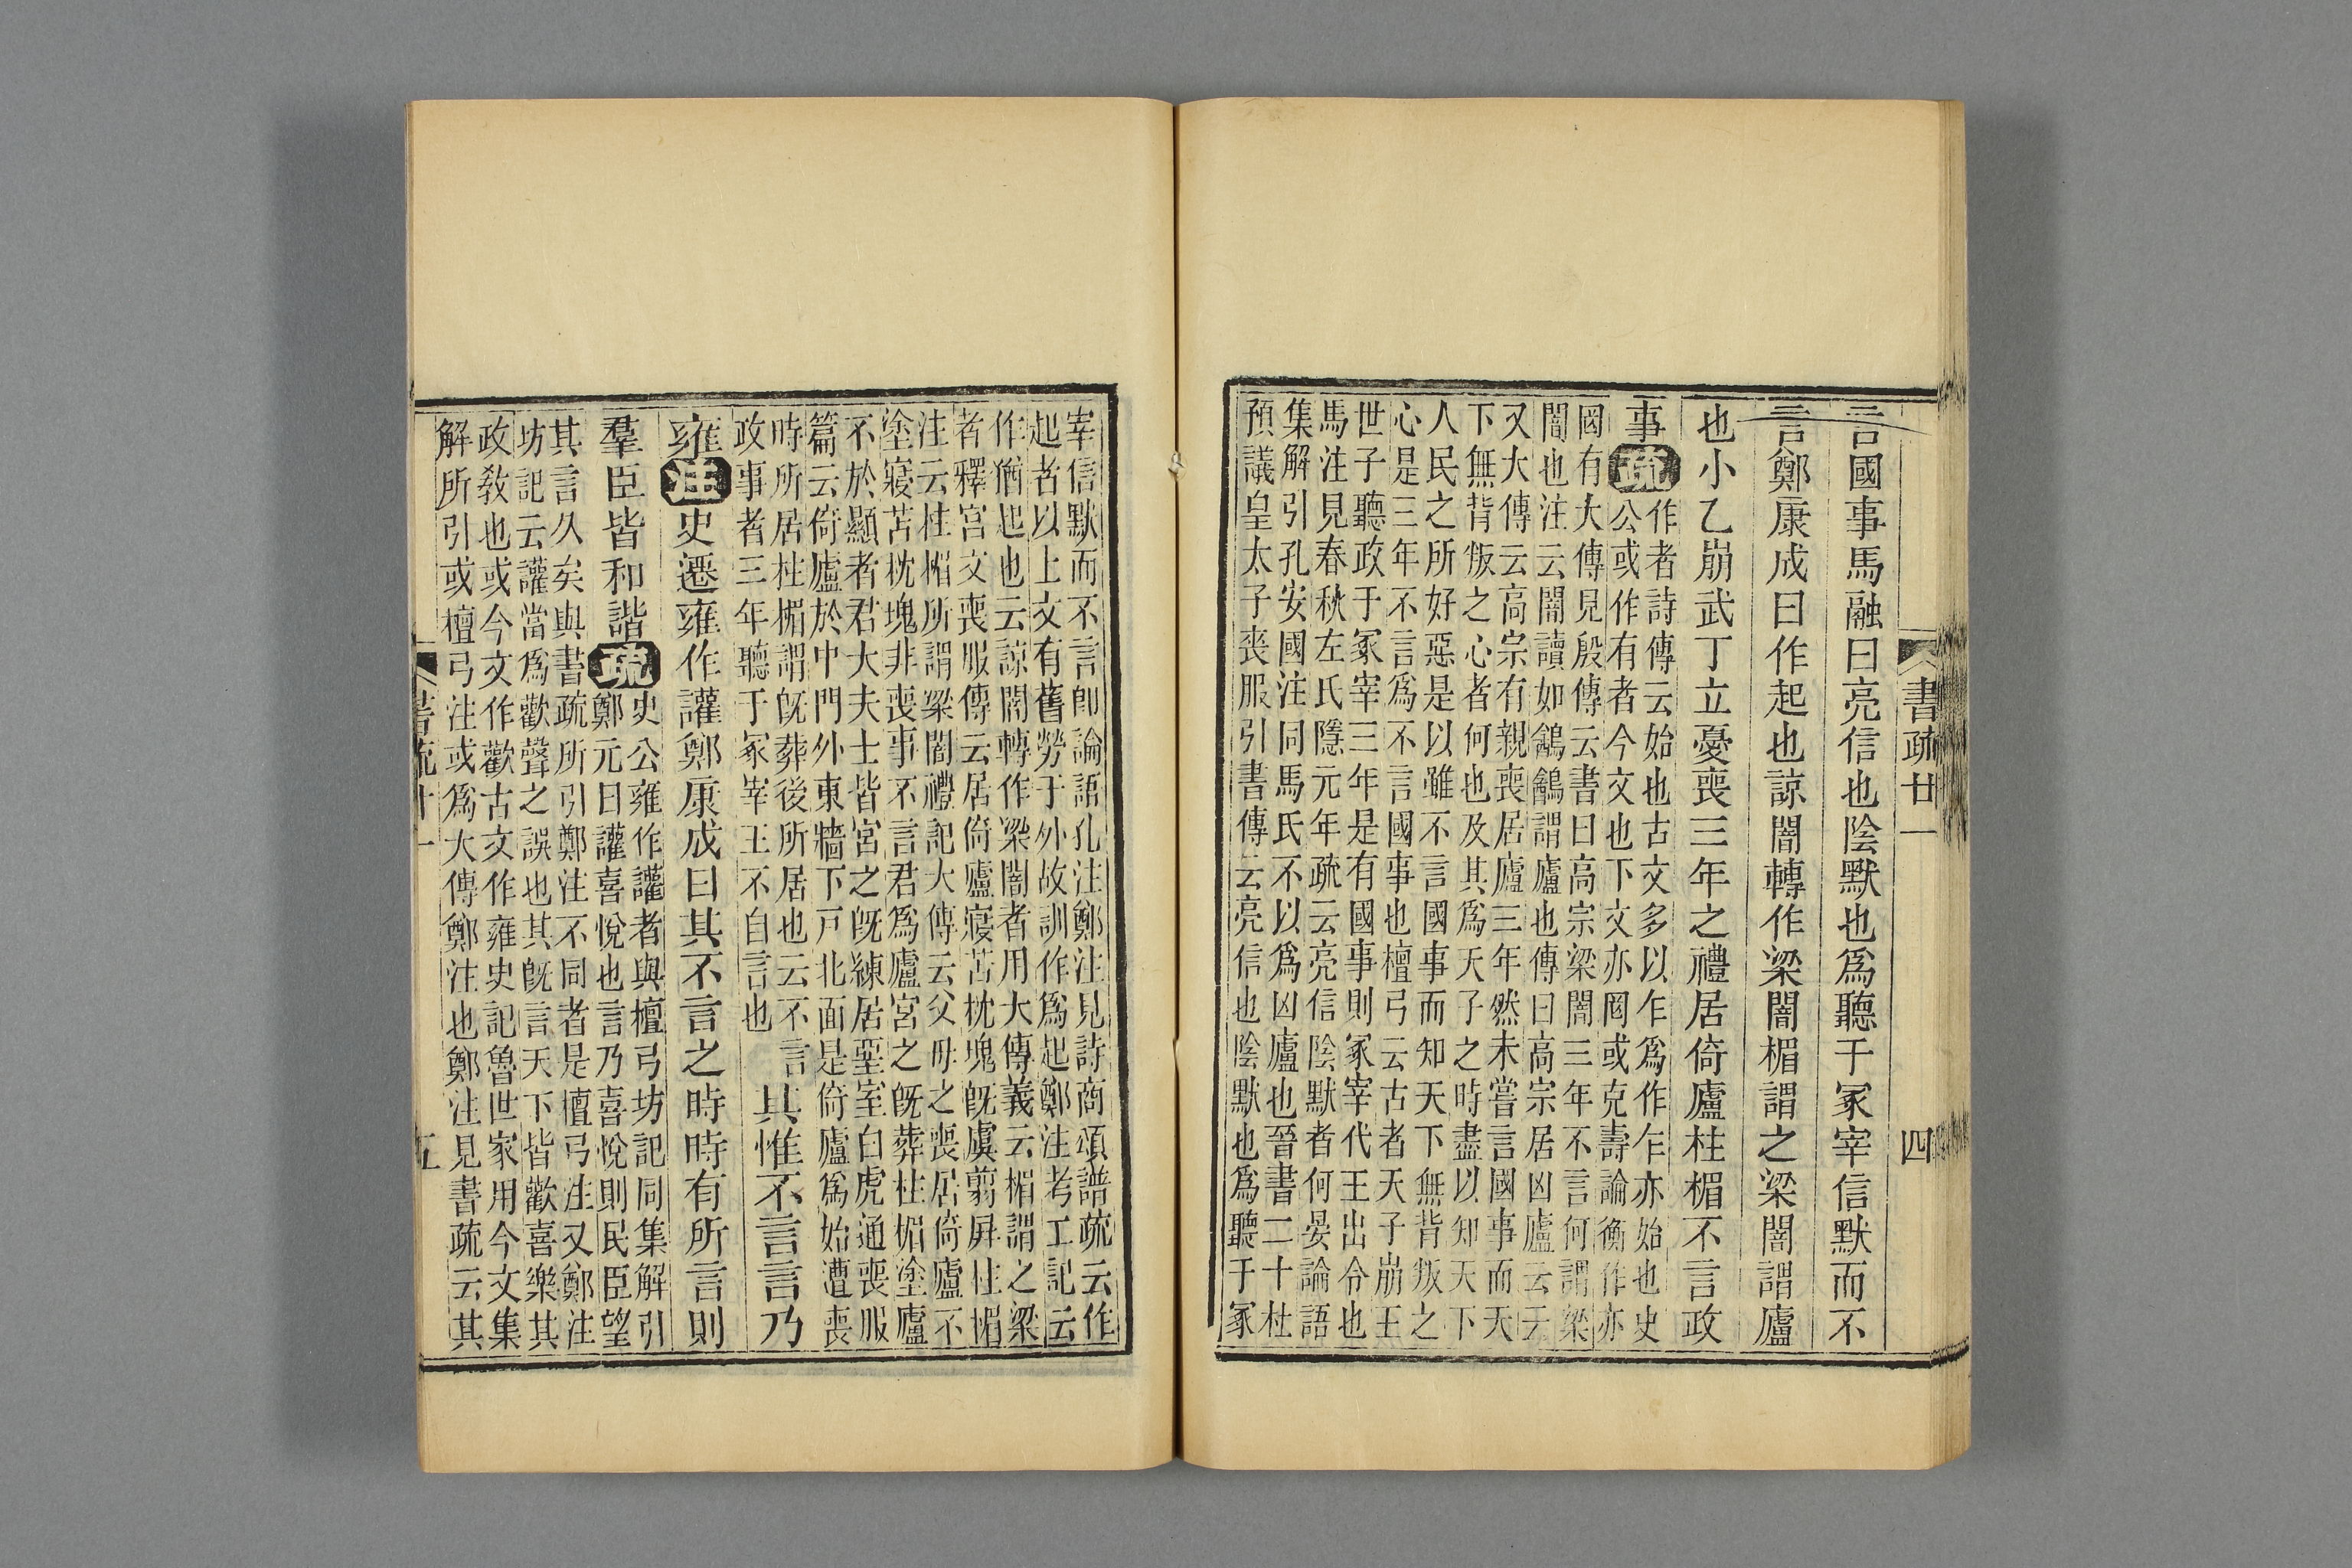 書疏廿一
四
言國事馬融曰亮信也陰默也爲聽于冢宰信默而不
言鄭康成曰作起也諒闇轉作梁闇楣謂之梁闇謂廬
也小乙崩武丁立憂喪三年之禮居倚廬柱楣不言政
事疏
作者詩傳云始也古文多以乍爲作乍亦始也史
公或作有者今文也下文亦罔或克壽論衡作亦
罔有大傳見殷傳云書曰高宗梁闇三年不言何謂梁
闇也注云闇讀如鶉鶉謂廬也傳曰高宗居凶廬云云
又大傳云高宗有親喪居廬三年然未嘗言國事而天
下無背叛之心者何也及其爲天子之時盡以知天下
人民之所好惡是以雖不言國事而知天下無背叛之
心是三年不言爲不言國事也檀弓云古者天子崩王
世子聽政于冢宰三年是有國事則冢宰代王出令也
馬注見春秋左氏隱元年疏云亮信陰默者何晏論語
集解引孔安國注同馬氏不以爲凶廬也晉書二十杜
預議皇太子喪服引書傳云亮信也陰默也爲聽于冢
宰信默而不言卽論語孔注鄭注見詩商頌譜疏云作
起者以上文有舊勞于外故訓作爲起鄭注考工記云
作猶起也云諒闇轉作梁闇者用大傳義云楣謂之梁
者釋宮文喪服傳云居倚廬寢苫枕塊旣虞翦屏柱楣
注云柱楣所謂梁闇禮記大傳云父母之喪居倚廬不
塗寢苫枕塊非喪事不言君爲廬宮之旣葬柱楣塗廬
不於顯者君大夫士皆宮之旣練居堊室白虎通喪服
篇云倚廬於中門外東牆下戶北面是倚廬爲始遭喪
時所居柱楣謂旣葬後所居也云不言
政事者三年聽于冢宰王不自言也
其惟不言言乃
雍注史遷雍作讙鄭康成曰其不言之時時有所言則
羣臣皆和諧疏
史公雍作讙者與檀弓坊記同集解引
鄭元曰讙喜悅也言乃喜悅則民臣望
其言久矣與書疏所引鄭注不同者是檀弓注又鄭注
坊記云讙當爲歡聲之誤也其旣言天下皆歡喜樂其
政敎也或今文作歡古文作雍史記魯世家用今文集
解所引或檀弓注或爲大傳鄭注也鄭注見書疏云其
書疏廿一
五